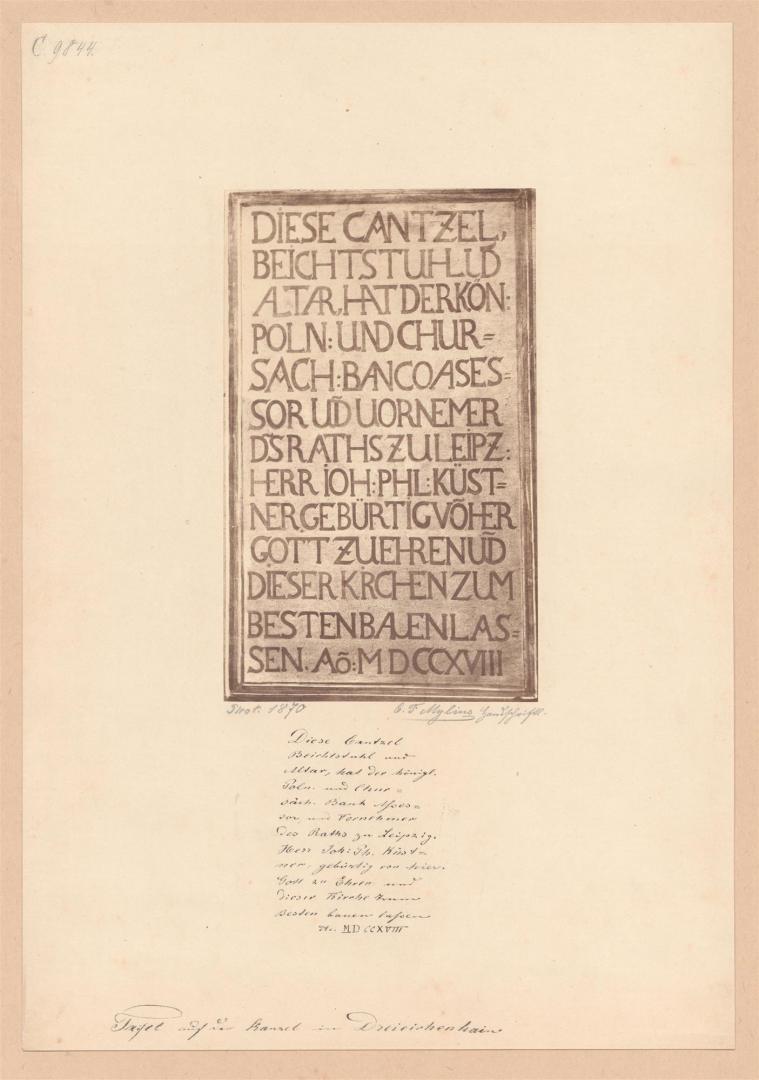 C. 9844.
DIESE CANTZEL,
BEICHTSTUHL UD̃
ALTAR, HAT DER KÖN:
POLN: UND CHUR=
SACH: BANCO ASES=
SOR UD̃ UORNEMER
DS RATHS ZU LEIPZ:
HERR IOH: PHL: KÜST=
NER GEBÜRTIG VÕ HIER
GOTT ZU EHREN UD̃
DIESER KIRCHEN ZUM
BESTEN BAUEN LAS=
SEN. AÕ: MDCCXVIII
Phot. 1870
C. F. Mylius
Diese Cantzel
Beichtstuhl und
Altar, hat der königl.
Poln. und Chur=
säch. Bank Asses=
sor und Vornehmer
des Raths zu Leipzig.
Herr Joh: Ph. Küst=
ner, gebürtig von hier.
Gott zu Ehren und
dieser Kirche zum
Besten bauen lassen
Ao. MDCCXVIII
Tafel auf der Kanzel in Dreieichenhain